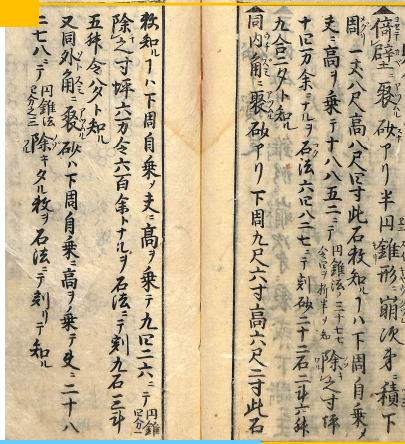 倚壁ニ聚砂アリ半円錐形ニ崩次第ニ積下
周一丈八尺高八尺四寸此石数知ルハ下周自乗メ
夫ニ高ヲ乗テ十八八五二ニテ円錐法ノ三十七七除之寸坪
十四万余ニナルヲ石法六四八二七ニテ割砂二十二石二斗六舛
九合二夕ト知ル
同内角ニ聚砂アリ下周九尺六寸高六尺二寸此石
数知ルハ下周自乗メ夫ニ高ヲ乗テ九四二六ニテ円錐四分一
除之寸坪六万令六百余トナルヲ石法ニテ割九石三斗
五舛令八夕ト知
又同外角ニ聚砂ハ下周自乗ニ高ヲ乗テ夫ニ二十八
二七八ニテ円錐法四分之三除キタル数ヲ石法ニテ割リテ知ル